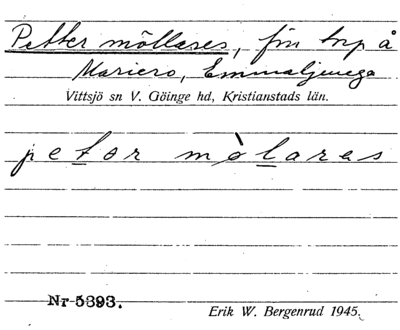 Petter möllares, fin torp å
Mariero, Emmaljunga
Vittsjö sn V. Göinge hd, Kristianstads län.
petər mòlarəs
Nr 5393.
Erik W. Bergenrud 1945.